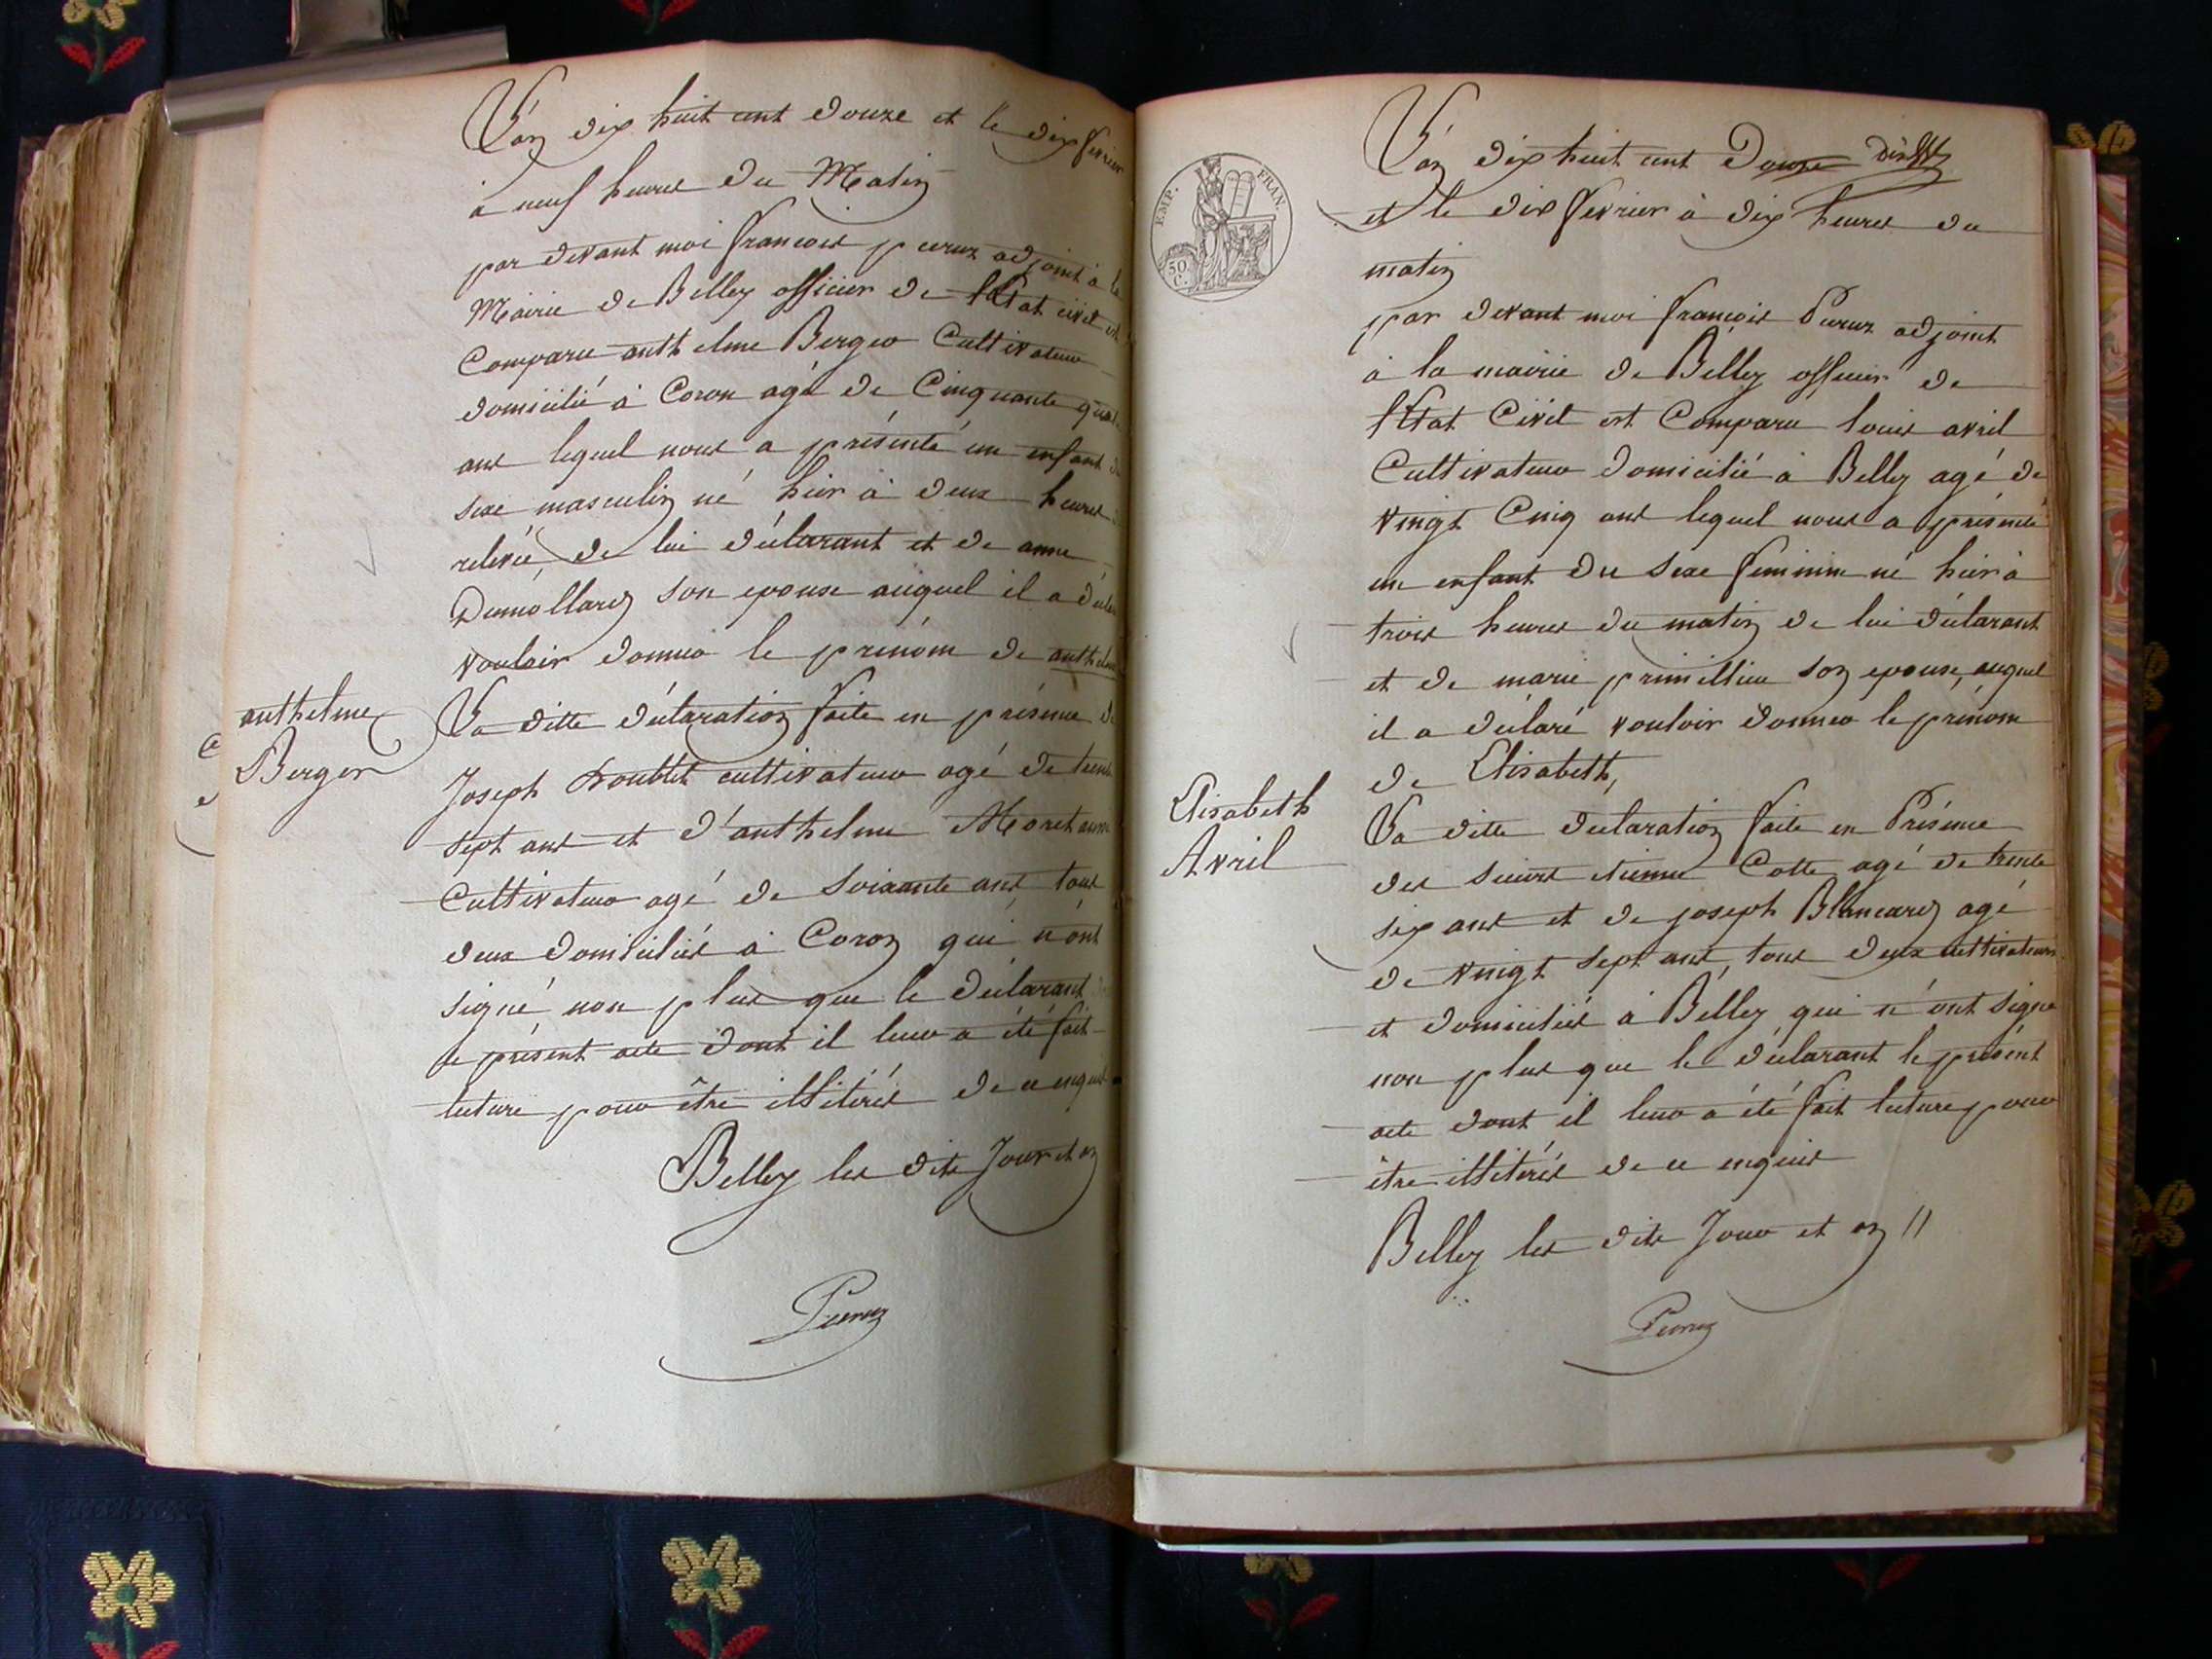 L'an dix huit cent douze et le dix fevrier
à neuf heures du Matin
par devant moi francois peruz adjoint à la
Mairie de Belley officier de l'état civil est
Comparu anthelme Berger Cultivateur
domicilié à Coron agé de Cinquante quatre
ans lequel nous a présenté un enfant du
sexe masculin né hier à deux heures
relevée de lui déclarant et de anne
Dumollard son epouse auquel il a déclaré
vouloir donner le prénom de anthelme
anthelme
Berger
La ditte déclaration faite en présence de
Joseph cultivateur agé de trente
sept ans et d'anthelme Moret aussi
Cultivateur agé de Soixante ans tous
deux domiciliés à Coron qui n'ont
signé non plus que le déclarant
le présent acte dont il leur a été fait
lecture pour être illitérés de ce enquis
Belley les dits Jour et an
Peruz
EMP. FRAN.
50 C.
L'an dix huit cent Douze
et le dix fevrier à dix heures du
matin
par devant moi francois Peruz adjoint
à la mairie de Belley officier de
l'état Civil est Comparu louis avril
Cultivateur domicilié à Belley agé de
vingt Cinq ans lequel nous a présenté
un enfant du sexe feminin né hier à
trois heures du matin de lui déclarant
et de marie son epouse, auquel
il a déclaré vouloir donner le prénom
de Elisabeth,
Elisabeth
Avril
La ditte declaration faite en Présence
des sieurs etienne Cotte agé de trente
six ans et de joseph Blancard agé
de vingt sept ans, tous deux cultivateurs
et domiciliés à Belley qui n'ont signé
non plus que le déclarant le présent
acte dont il leur a été fait lecture pour
être illitérés de ce enquis
Belley les dits Jour et an //
Peruz